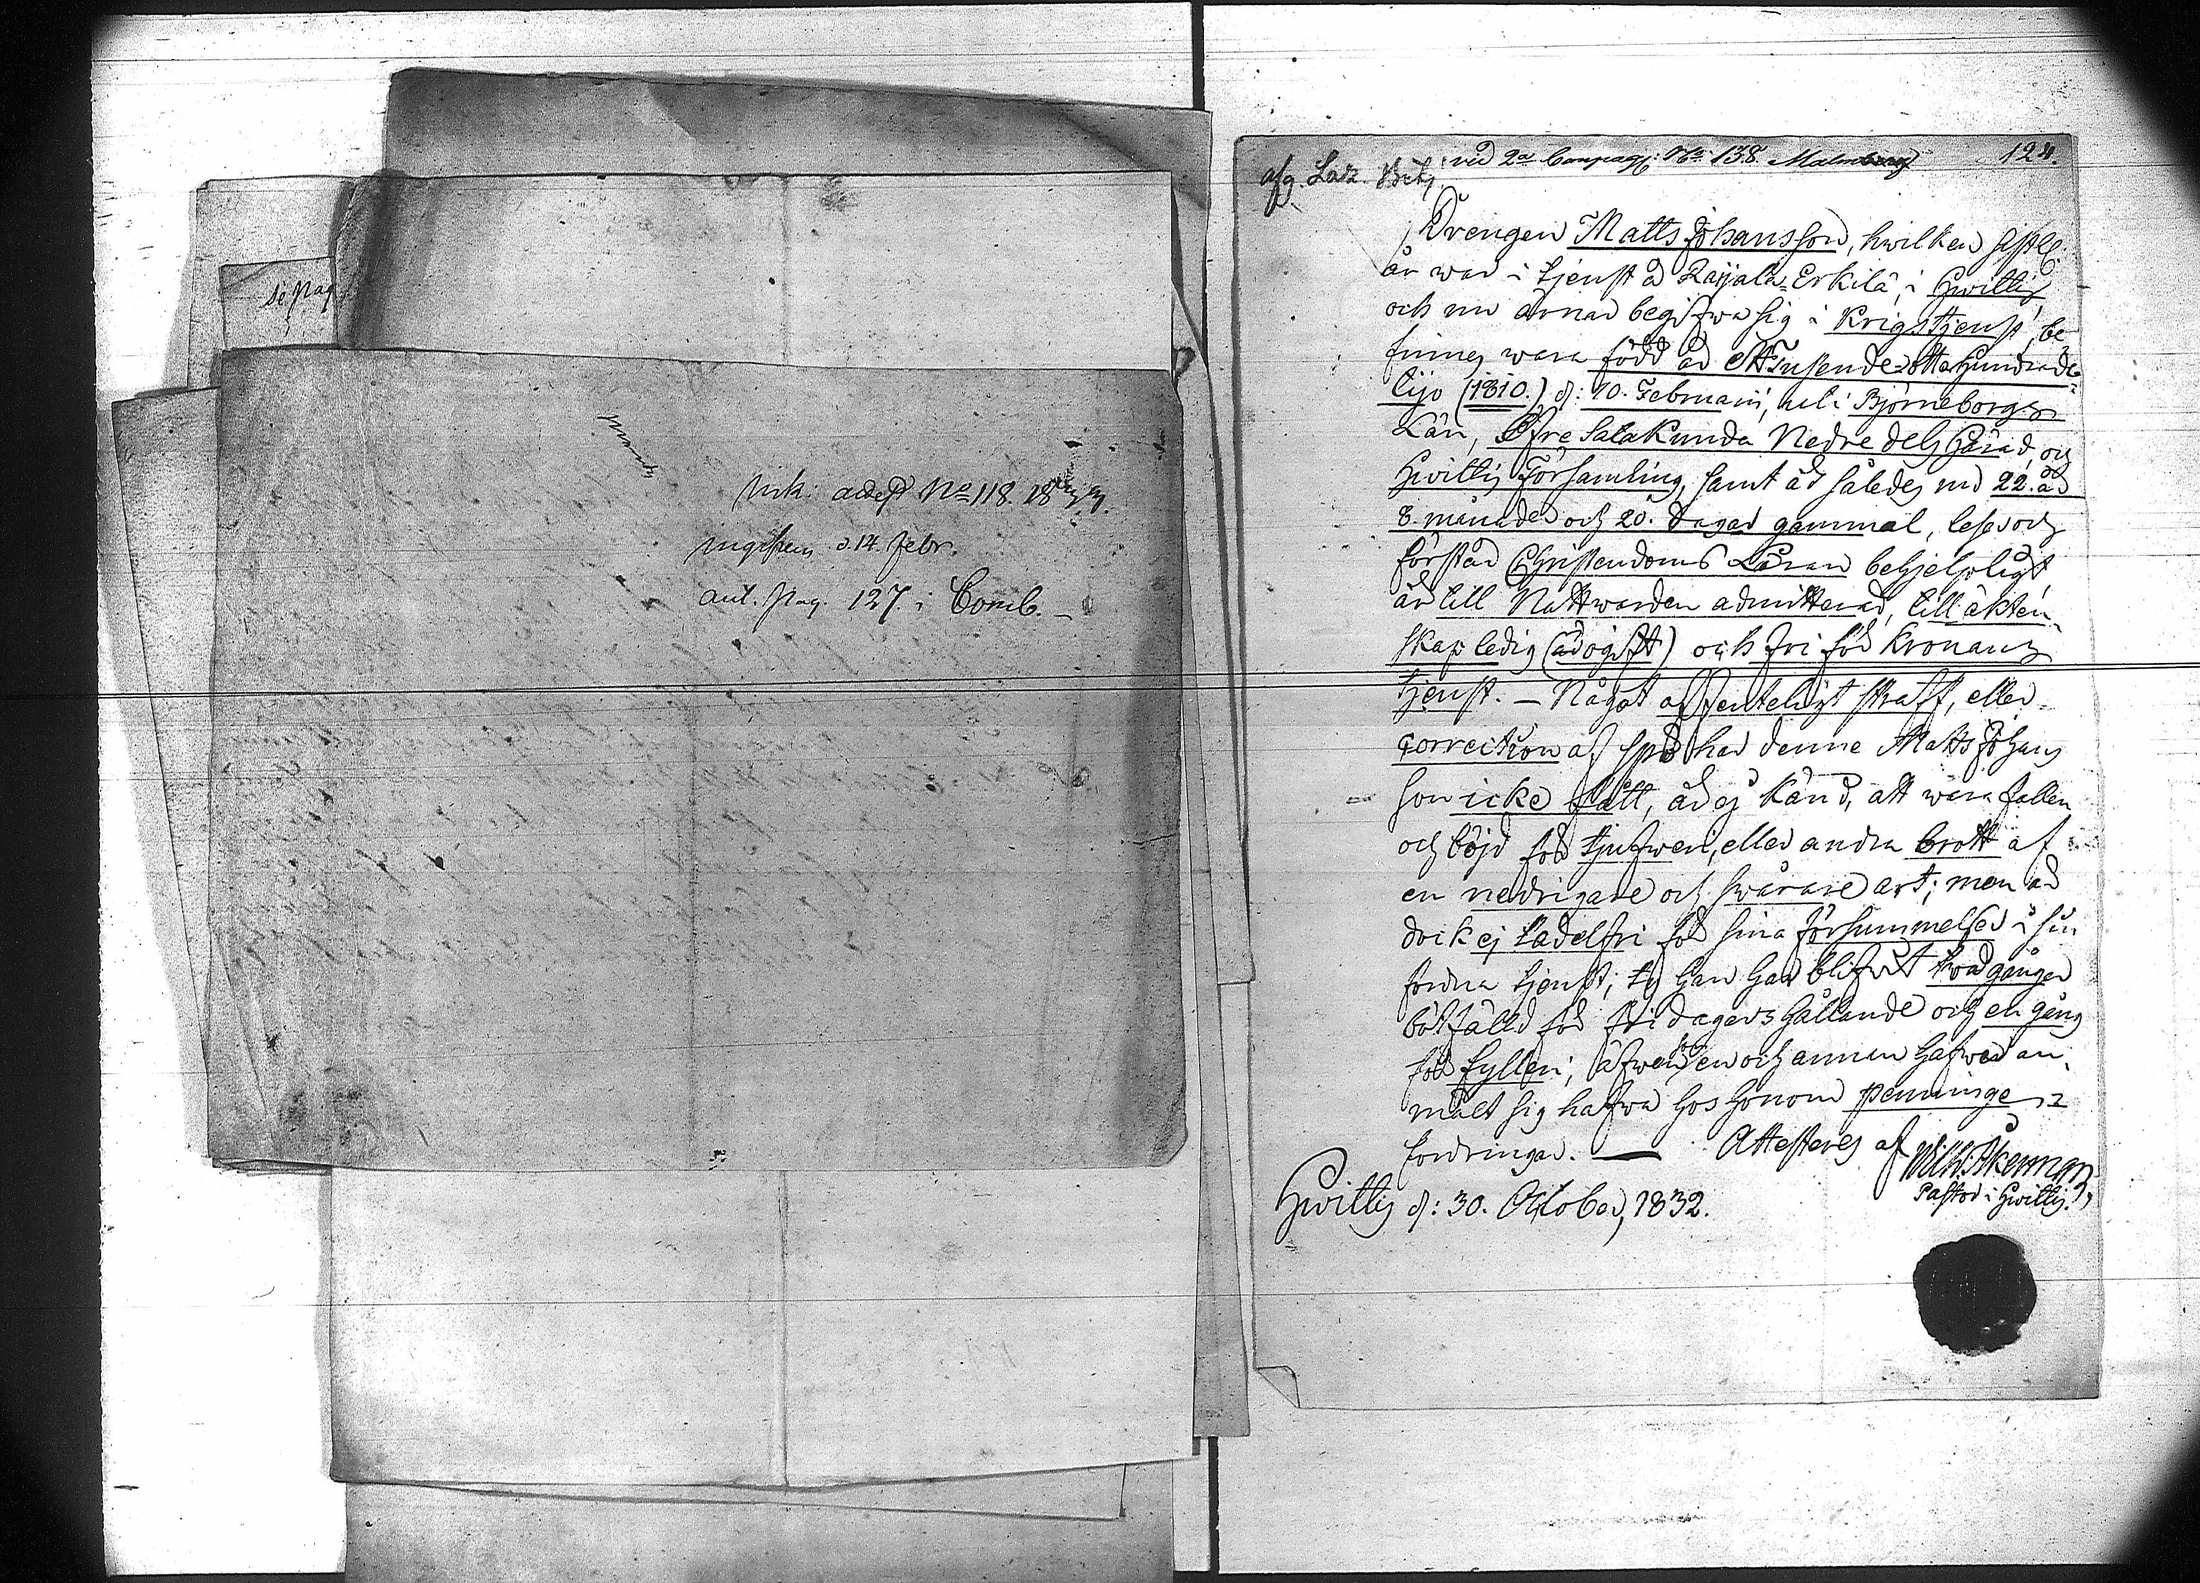 se pag
ank: adesp No 118. 18
ingifven d. 14. febr.
ant. pag. 127. i Comb. —
vid 2a Compag: No 138. Malmberg
124.
afg. Laz. Btj
Drengen Matts Johansson, hwilken sistl.
år war i tjenst å Raijala-Erkilä, i Hwittis
och nu ärnar begifwa sig i Krigstjenst, be
finnes wara född år Ett Tusende Otta Hundrade
tijo (1810.) d: 10. Februarii, uti Björneborgs
Län, Öfre Satakunda Nedre dels Härad, och
Hwittis Församling, samt är således nu 22. år
8. månader och 20. dagar gammal, läser och
förstår Christendoms Läran behjelpligt
är till Nattwarden admitterad, till äkten-
skap ledig (är ogift) och fri för Kronans
tjenst. — Något offenteligt straff, eller
correction af spö har denne Matts Johans
son icke fått, är ej känd, att wara fallen
och böjd för tjufweri, eller andra brott af
en nedrigare och swårare art; men är
dock ej tadelfri för sina försummelser i sin
fordna tjenst; ty han har blifwit twå gånger
bötfälld för fridagars hållande och en gång
för fylleri; äfwen en och annan hafwer an-
mält sig hafwa hos honom penninge
fordringar. — Attesteras af Wilh: Åkerman,
Pastor i Hwittis.
Hwittis d: 30. October, 1832.